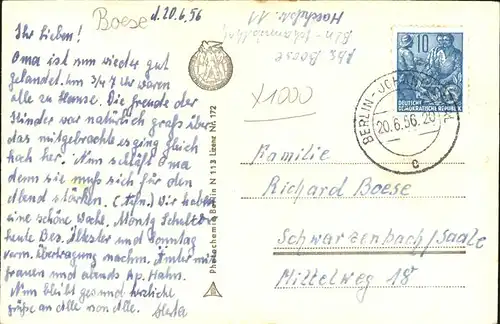 Boese
d. 20.6.56
Ihr Lieben!
Oma ist nun wieder gut
gelandet. Um 3/4 7 Uhr waren
alle zu Hause. Die Freude der
Kinder war natürlich groß über
das mitgebrachte es ging gleich
hoch her. Nun schläft Oma
denn sie muß sich für den
Abend stärken. Wir haben
eine schöne Wahl.
heute Bez. Ältester und Sonntag
vorm. Übertragung nachm.
frauen und abends Ap. Hahn.
Nun bleibt gesund herzliche
Grüße an Alle von Alle. Herta
Abs. Boese
Bln-Johannisthal
11
X1000
Photochemie Berlin N 113 Lizenz Nr. 172
10
DEUTSCHE
DEMOKRATISCHE REPUBLIK
BERLIN-JOHANNISTHAL
20.6.56. 20
c
Familie
Richard Boese
Schwarzenbach/Saale
Mittelweg 18